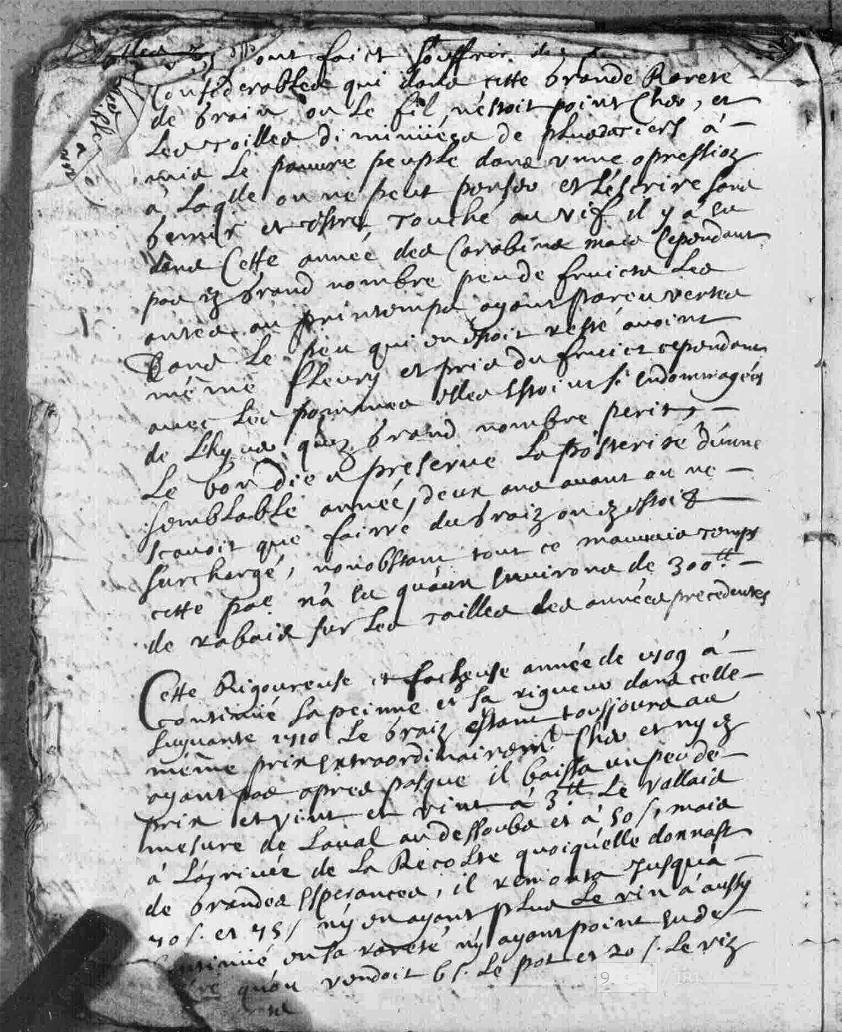 ont faict souffrir des
Considérables qui dans cette Grande Rareté
de Grain ou Le fil nestoit point Cher, et
Les toilles diminuées de plus d'un tiers à
mis Le pauvre peuple dans vnne opression
à Laqlle on ne peut penser et L'escrire sans
Gemir et estre touché au vif il y à eu
dans Cette année des Carabins mais Cependant
pas grand nombre peu de fruicts Les
antes au printemps ayant pareu vertes
Dans Le peu qui en estoit resté avoint
même fleury et pris du fruict cependant
avec Les pommes elles estoint si Endommagées
de L'hyver qu'un Grand nombre perit,
Le bon dieu preserve La posterité d'unne
semblable année, deux ans avant on ne
scavoit que fairre du Grain on en estoit
surchargé, nonobstant tout ce mauvais temps
cette pse n'à eu qu'un Environs de 300tt
de rabais sur Les tailles des années precedentes
Cette Rigoureuse et facheuse année de 1709 à
continué sa peinne et sa rigueur dans celle
suyvante 1710 Le Grain estant tousjours au
même prix extraordinairemt Cher et n'y en
ayant pas apres pasque il baissa un peu de
prix et vint et vint à 3tt Le vallais
mesure de Laval au dessoubs et à 50 s, mais
à L'arrivée de La Recolte quoiqu'elle donnast
de Grandes Esperances, il remonta jusqu'a
70 s. et 75 s n'y en ayant plus Le vin à aussy
continué en sa rareté n'y ayant point Eu de
qu'on vendoit 6 s. Le pot et 20 s. Le vin